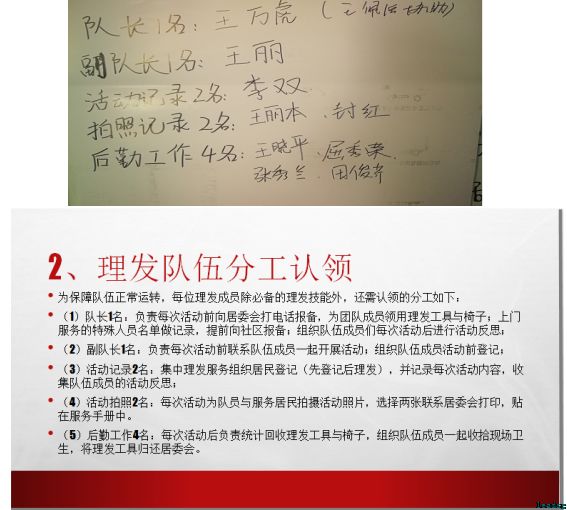 队长1名：王万虎（王佩法协助）
副队长1名：王丽
活动记录2名：李双
拍照记录2名：王丽本、封红
后勤工作4名：王晓平、屈秀荣、
张秀兰、田俊芹
2、理发队伍分工认领
• 为保障队伍正常运转，每位理发成员除必备的理发技能外，还需认领的分工如下：
• （1）队长1名：负责每次活动前向居委会打电话报备，为团队成员领用理发工具与椅子；上门
服务的特殊人员名单做记录，提前向社区报备；组织队伍成员们每次活动后进行活动反思；
• （2）副队长1名：负责每次活动前联系队伍成员一起开展活动；组织队伍成员活动前登记；
• （3）活动记录2名：集中理发服务组织居民登记（先登记后理发），并记录每次活动内容，收
集队伍成员的活动反思；
• （4）活动拍照2名：每次活动为队员与服务居民拍摄活动照片，选择两张联系居委会打印，贴
在服务手册中。
• （5）后勤工作4名：每次活动后负责统计回收理发工具与椅子，组织队伍成员一起收拾现场卫
生，将理发工具归还居委会。